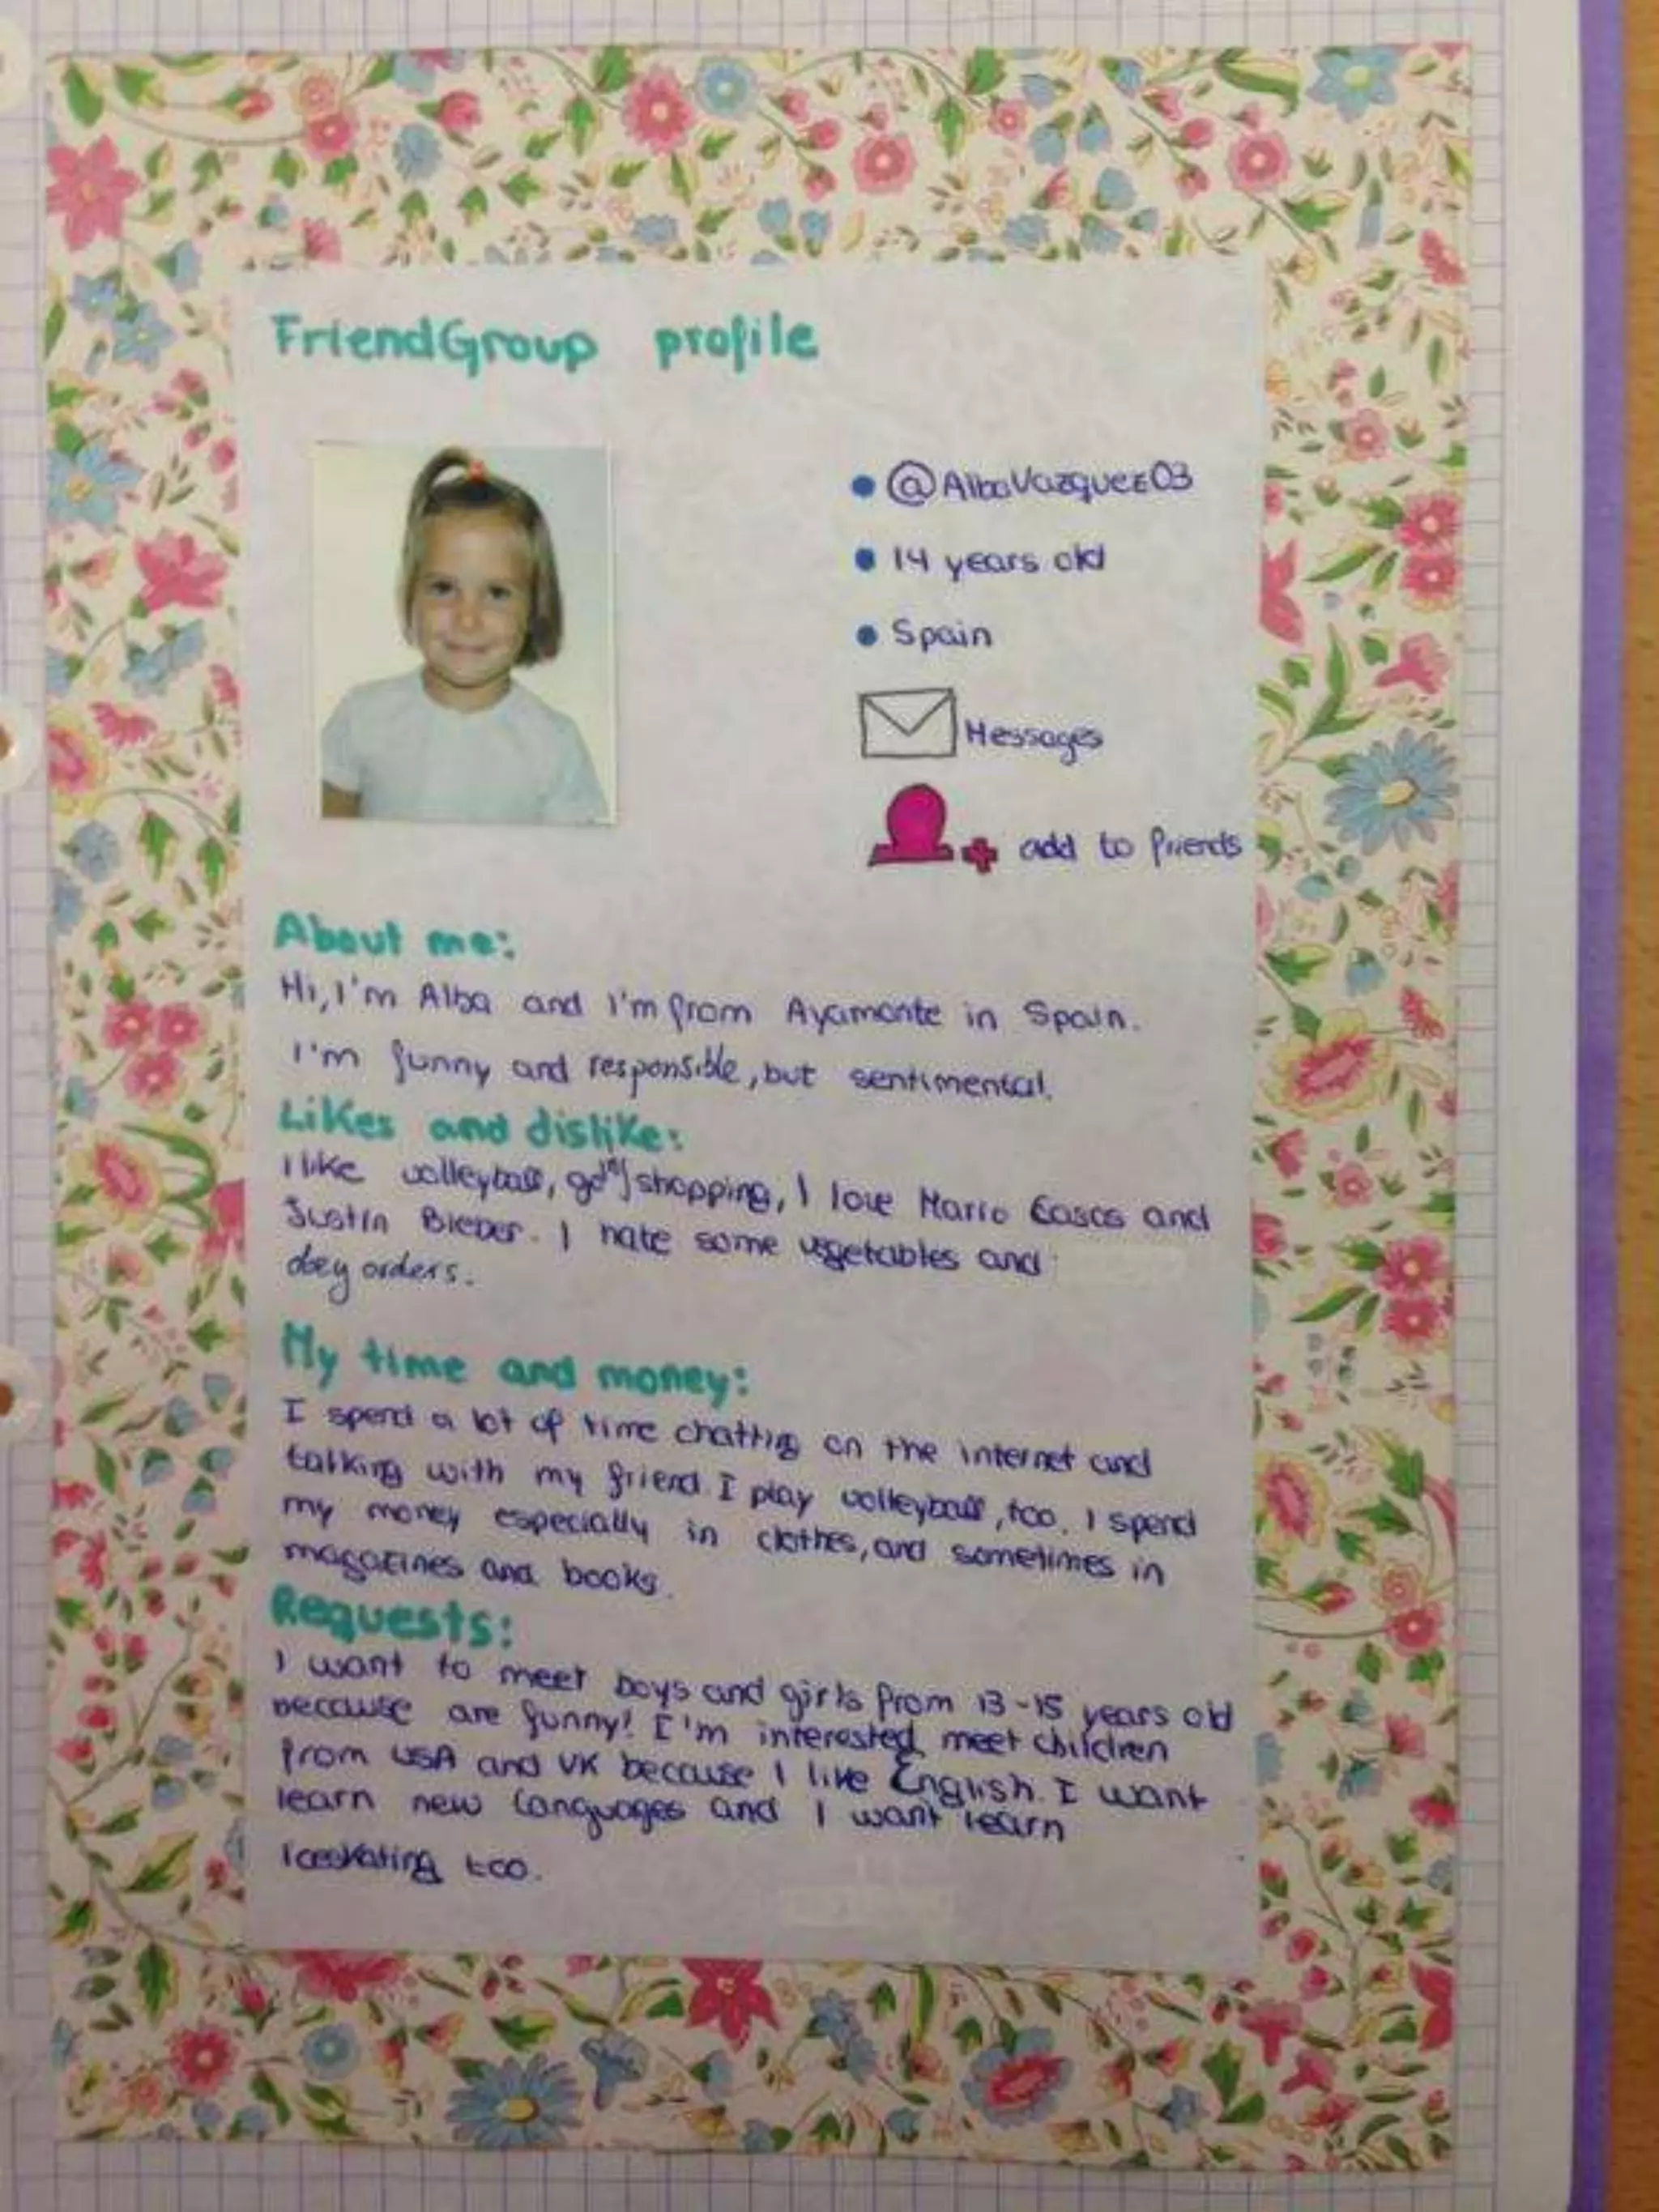 FriendGroup profile
@AlbaVazquez03
14 years old
Spain
Messages
add to friends
About me:
Hi, I'm Alba and I'm from Ayamonte in Spain.
I'm funny and responsible, but sentimental.
Likes and dislike:
I like volleyball, going shopping, I love Mario Casas and
Justin Bieber. I hate some vegetables and
obey orders.
My time and money:
I spend a lot of time chatting on the internet and
talking with my friend. I play volleyball, too. I spend
my money especially in clothes, and sometimes in
magazines and books.
Requests:
I want to meet boys and girls from 13-15 years old
because are funny! I'm interested meet children
from USA and UK because I like English. I want
learn new languages and I want learn
iceskating too.